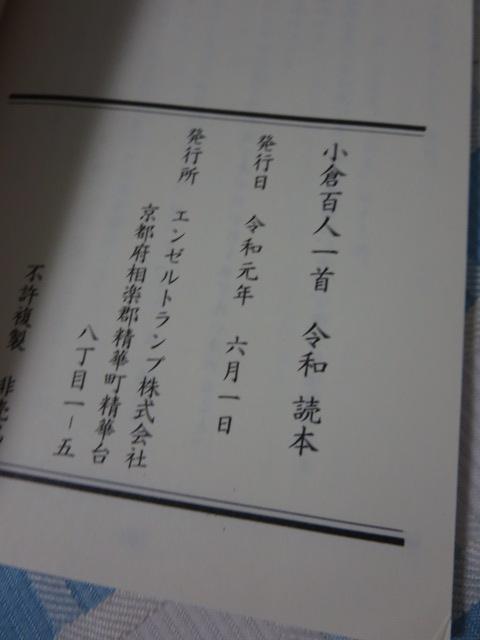 小倉百人一首　令和　読本
発行日　令和元年　六月一日
発行所　エンゼルトランプ株式会社
京都府相楽郡精華町精華台
八丁目一－五
不許複製　非売品